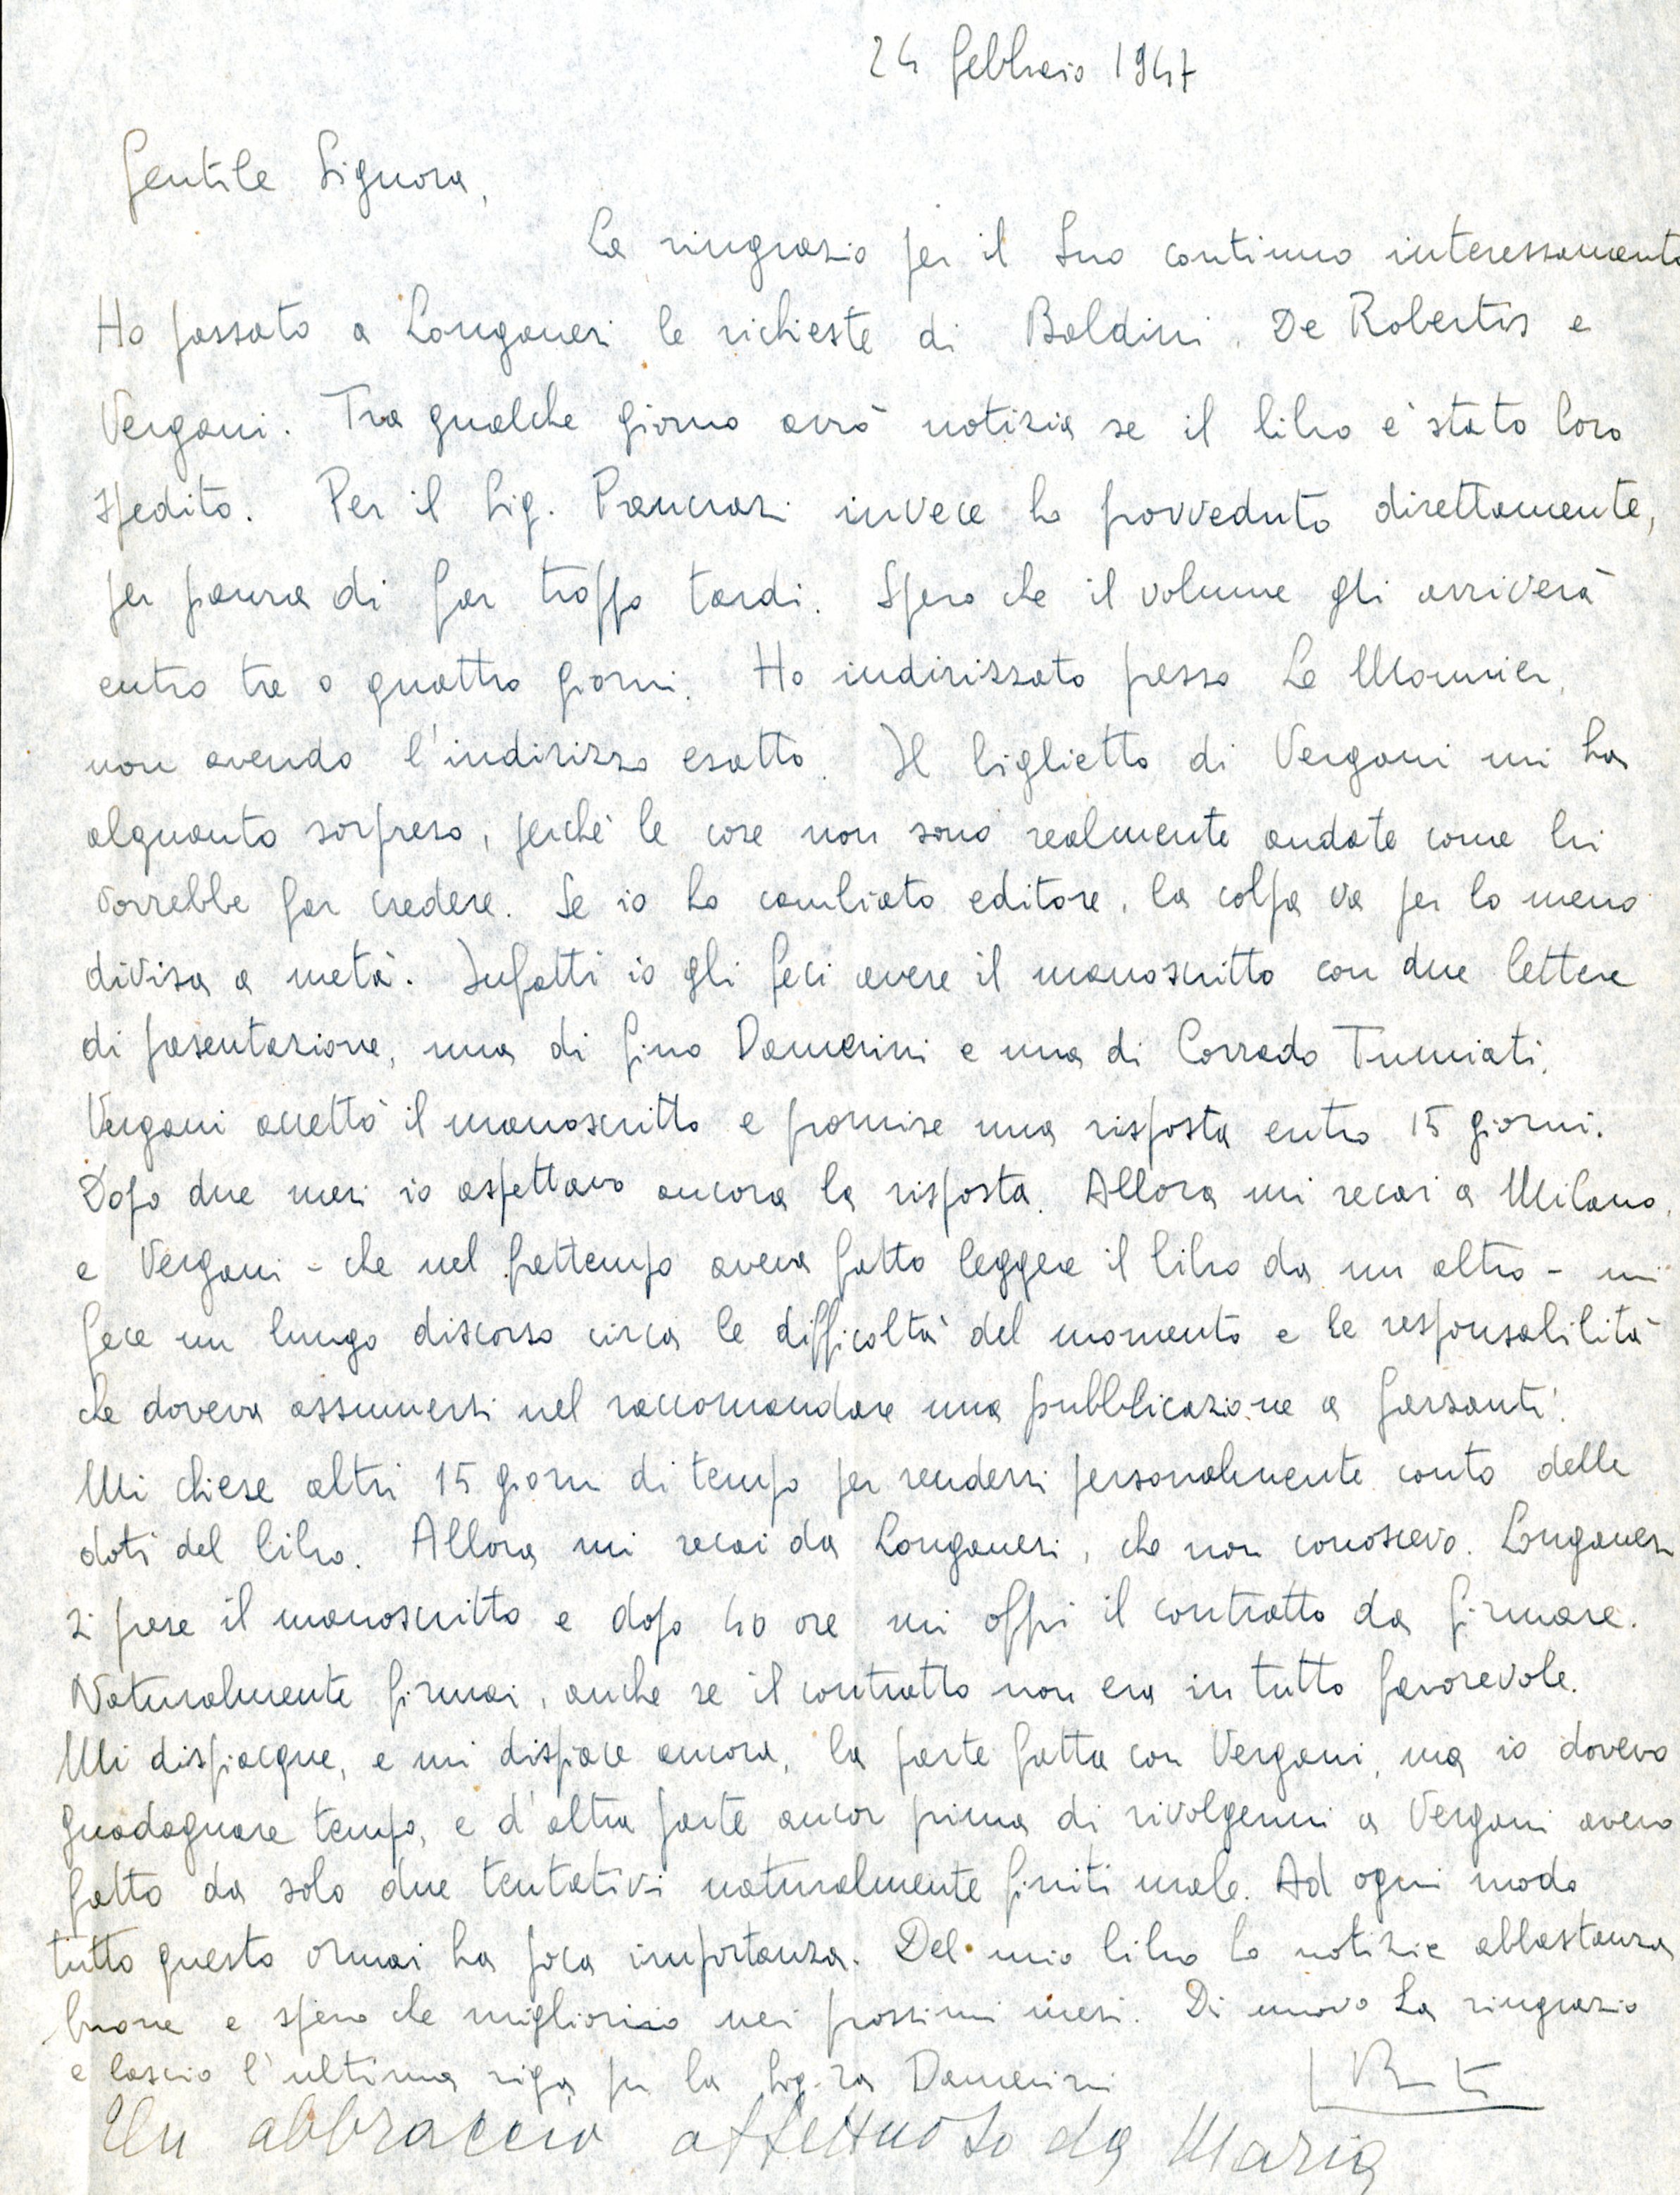 24 febbraio 1947
Gentile Signora,
La ringrazio per il Suo continuo interessamento
Ho passato a Longanesi le richieste di Baldini, De Robertis e
Vergani. Tra qualche giorno avrò notizia se il libro è stato loro
spedito. Per il Sig. Pancrazi invece ho provveduto direttamente,
per paura di far troppo tardi. Spero che il volume gli arriverà
entro tre o quattro giorni. Ho indirizzato presso Le Monnier,
non avendo l'indirizzo esatto. Il biglietto di Vergani mi ha
alquanto sorpreso, perchè le cose non sono realmente andate come lui
vorrebbe far credere. Se io ho cambiato editore, la colpa va per lo meno
divisa a metà. Infatti io gli feci avere il manoscritto con due lettere
di presentazione, una di Gino Damerini e una di Corrado Tumiati.
Vergani accettò il manoscritto e promise una risposta entro 15 giorni.
Dopo due mesi io aspettavo ancora la risposta. Allora mi recai a Milano,
e Vergani - che nel frattempo aveva fatto leggere il libro da un altro - mi
fece un lungo discorso circa le difficoltà del momento e le responsabilità
che doveva assumersi nel raccomandare una pubblicazione a Garzanti.
Mi chiese altri 15 giorni di tempo per rendersi personalmente conto delle
doti del libro. Allora mi recai da Longanesi, che non conoscevo. Longanesi
si prese il manoscritto e dopo 40 ore mi offrì il contratto da firmare.
Naturalmente firmai, anche se il contratto non era in tutto favorevole.
Mi dispiacque, e mi dispiace ancora, la parte fatta con Vergani, ma io dovevo
guadagnare tempo, e d'altra parte ancor prima di rivolgermi a Vergani avevo
fatto da solo due tentativi naturalmente finiti male. Ad ogni modo
tutto questo ormai ha poca importanza. Del mio libro ho notizie abbastanza
buone e spero che migliorino nei prossimi mesi. Di nuovo La ringrazio
e lascio l'ultima riga per la Sig.ra Damerini
Un abbraccio affettuoso da Maria